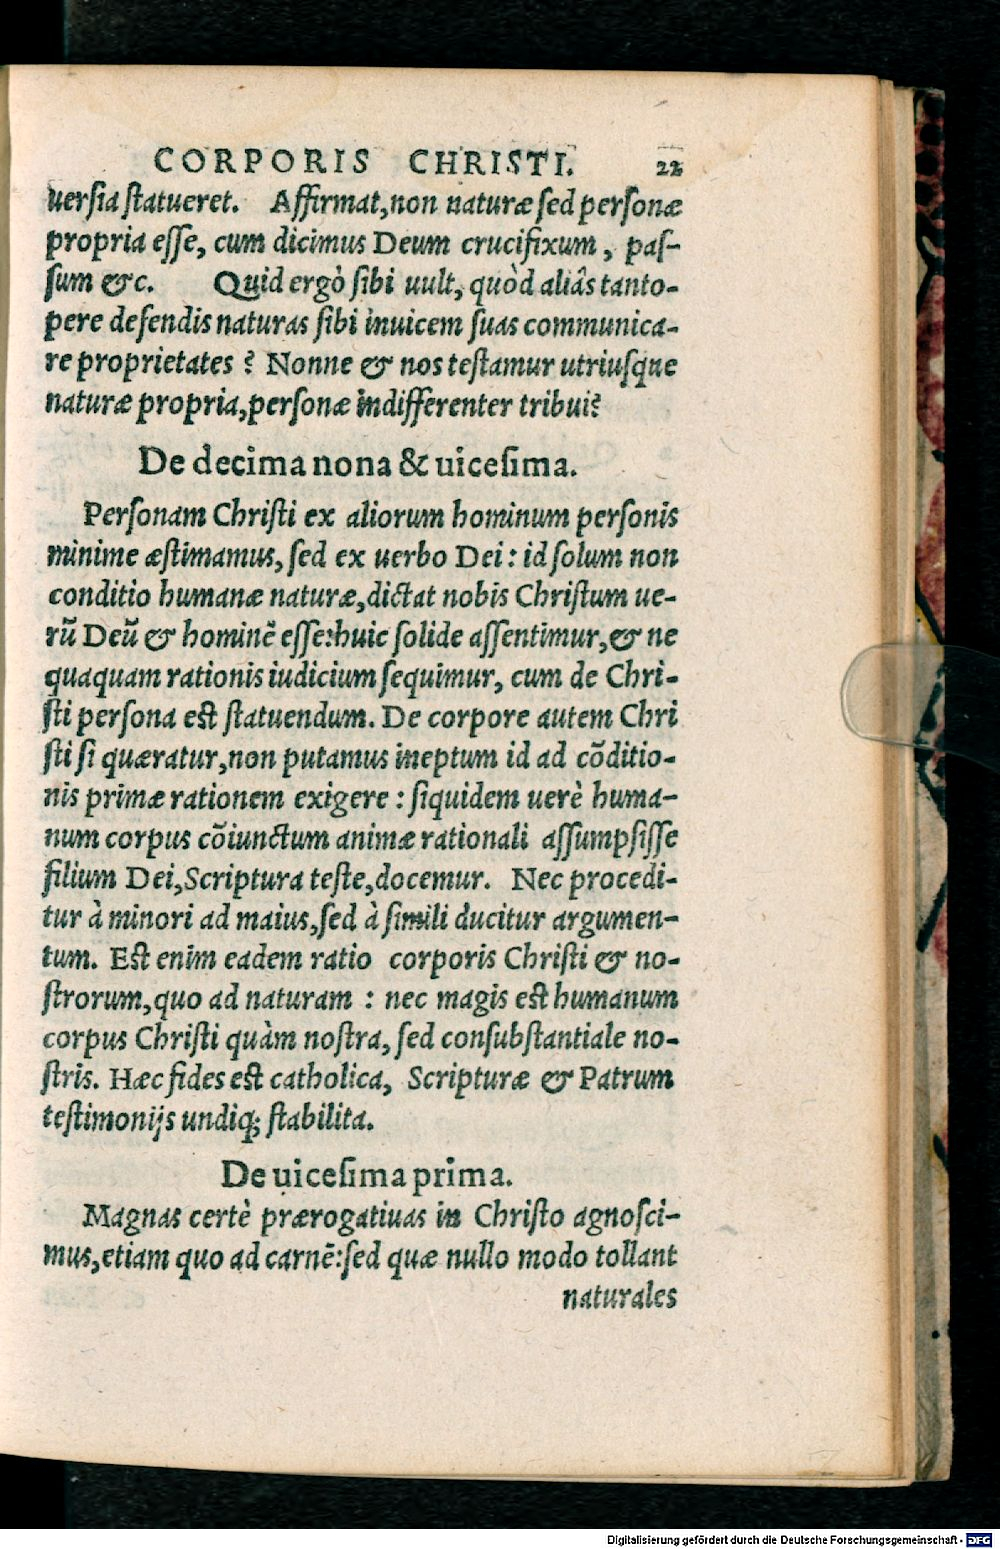 CORPORIS CHRISTI. 22
uersia statueret. Affirmat, non naturæ sed personæ
propria esse, cum dicimus Deum crucifixum, pas-
sum &c. Quid ergò sibi uult, quòd aliâs tanto-
pere defendis naturas sibi inuicem suas communica-
re proprietates? Nonne & nos testamur utriusque
naturæ propria, personæ indifferenter tribui?
De decima nona & uicesima.
Personam Christi ex aliorum hominum personis
minime æstimamus, sed ex uerbo Dei: id solum non
conditio humanæ naturæ, dictat nobis Christum ue-
rũ Deũ & hominẽ esse: huic solide assentimur, & ne
quaquam rationis iudicium sequimur, cum de Chri-
sti persona est statuendum. De corpore autem Chri
sti si quæratur, non putamus ineptum id ad cõditio-
nis primæ rationem exigere: siquidem uerè huma-
num corpus cõiunctum animæ rationali assumpsisse
filium Dei, Scriptura teste, docemur. Nec procedi-
tur à minori ad maius, sed à simili ducitur argumen-
tum. Est enim eadem ratio corporis Christi & no-
strorum, quo ad naturam: nec magis est humanum
corpus Christi quàm nostra, sed consubstantiale no-
stris. Hæc fides est catholica, Scripturæ & Patrum
testimonijs undiq; stabilita.
De uicesima prima.
Magnas certè prærogatiuas in Christo agnosci-
mus, etiam quo ad carnẽ: sed quæ nullo modo tollant
naturales
Digitalisierung gefördert durch die Deutsche Forschungsgemeinschaft - DFG